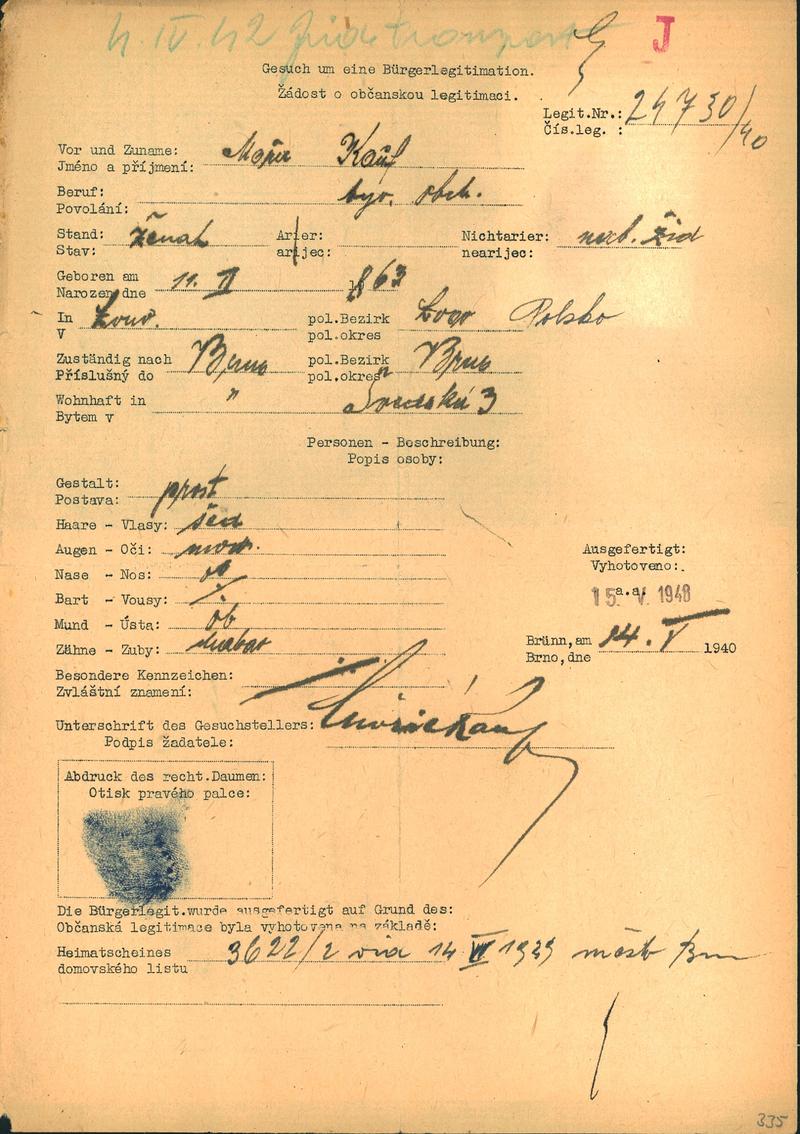 4. IV. 42 Židetransport
J
Gesuch um eine Bürgerlegitimation.
Žádost o občanskou legitimaci.
Legit.Nr.: 24730/40
Čís.leg. :
Vor und Zuname:
Jméno a příjmení: Kauf
Beruf:
Povolání: obch.
Stand: ženat Arier: Nichtarier: žid
Stav: arijec: nearijec:
Geboren am
Narozen dne 11. II 1863
In pol.Bezirk Polsko
V pol.okres
Zuständig nach Brno pol.Bezirk Brno
Příslušný do pol.okres
Wohnhaft in " 3
Bytem v
Personen - Beschreibung:
Popis osoby:
Gestalt:
Postava: prost
Haare - Vlasy: šed
Augen - Oči: mod.
Nase - Nos: ob
Bart - Vousy:
Mund - Ústa: ob
Zähne - Zuby:
Ausgefertigt:
Vyhotoveno:
a.a.
15. V. 1940
Brünn,am 14. V 1940
Brno,dne
Besondere Kennzeichen:
Zvláštní znamení:
Unterschrift des Gesuchstellers: Kauf
Podpis žadatele:
Abdruck des recht.Daumen:
Otisk pravého palce:
Die Bürgerlegit.wurde ausgefertigt auf Grund des:
Občanská legitimace byla vyhotovena na základě:
Heimatscheines 3622/2 14 VI 1929
domovského listu
335